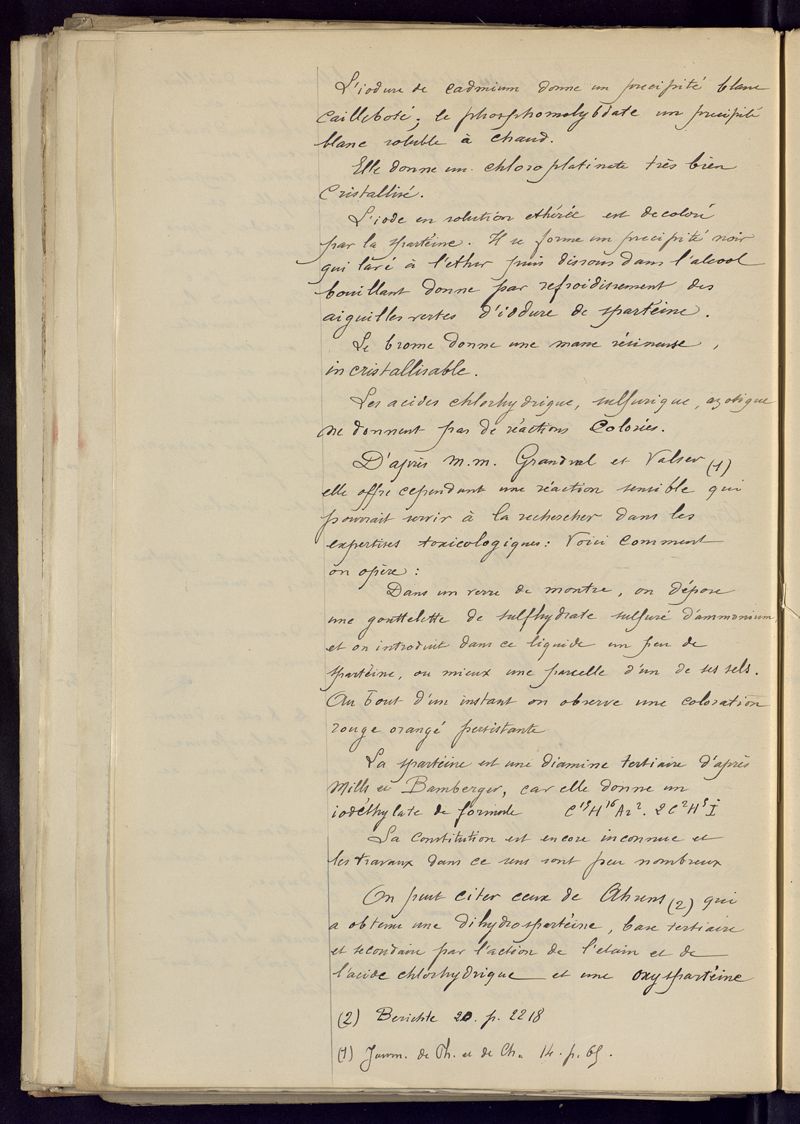 L'iodure de cadmium donne un precipité blanc
cailleboté ; le phosphomolybdate un precipité
blanc soluble à chaud.
Elle donne un chloroplatinate très bien
cristallisé.
L'iode en solution ethérée est decoloré
par la spartéine. Il se forme un precipité noir
qui lavé à l'ether puis dissous dans l'alcool
bouillant donne par refroidissement des
aiguilles vertes d'iodure de spartéine.
Le brome donne une masse résineuse,
incristallisable.
Les acides chlorhydrique, sulfurique, azotique
ne donnent pas de réactions colorées.
D'après M.M. Grandval et Valser (1)
elle offre cependant une réaction sensible qui
pourrait servir à la rechercher dans les
expertises toxicologiques : Voici comment
on opère :
Dans un verre de montre, on dépose
une gouttelette de sulfhydrate sulfuré d'ammonium
et on introduit dans ce liquide un peu de
spartéine, ou mieux une parcelle d'un de ses sels.
Au bout d'un instant on observe une coloration
rouge orangé persistante
La spartéine est une diamine tertiaire d'après
Mills et Bamberger, car elle donne un
iodéthylate de formule C¹⁵H¹⁶Az². 2C²H⁵I
La constitution est encore inconnue et
les travaux dans ce sens sont peu nombreux
On peut citer ceux de Ahrens (2) qui
a obtenu une dihydrospartéine, base tertiaire
et secondaire par l'action de l'etain et de
l'acide chlorhydrique et une oxyspartéine
(2) Berichte 20. p. 2218
(1) Journ. de Ph. et de Ch. 14. p. 65.